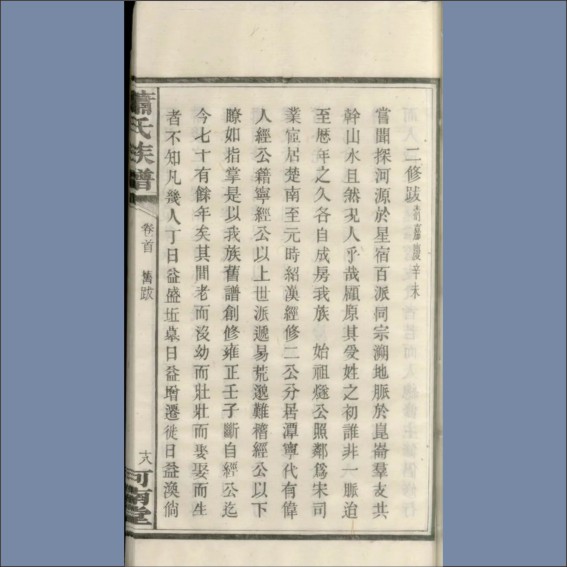 二修跋 嘉慶辛未
嘗聞探河源於星宿百派同宗溯地脈於崑崙羣支共
幹山水且然况人乎哉顧原其受姓之初誰非一脈迨
至歷年之久各自成房我族 始祖燧公照鄰爲宋司
業宦居楚南至元時紹漢經修二公分居潭寧代有偉
人經公籍寧經公以上世派遞易荒邈難稽經公以下
瞭如指掌是以我族舊譜創修雍正壬子斷自經公迄
今七十有餘年矣其間老而沒幼而壯壯而娶娶而生
者不知凡幾人丁日益盛坵墓日益增遷徙日益渙倘
蕭氏族譜
卷首 舊跋
十八
河南堂